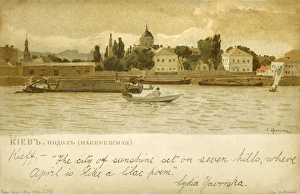 КІЕВЪ, ПОДОЛЪ (НАБЕРЕЖНАЯ)
Kieff. – "The city of sunshine set on seven hills, where
April is like a lilac poem".
Lydia Yavorska.